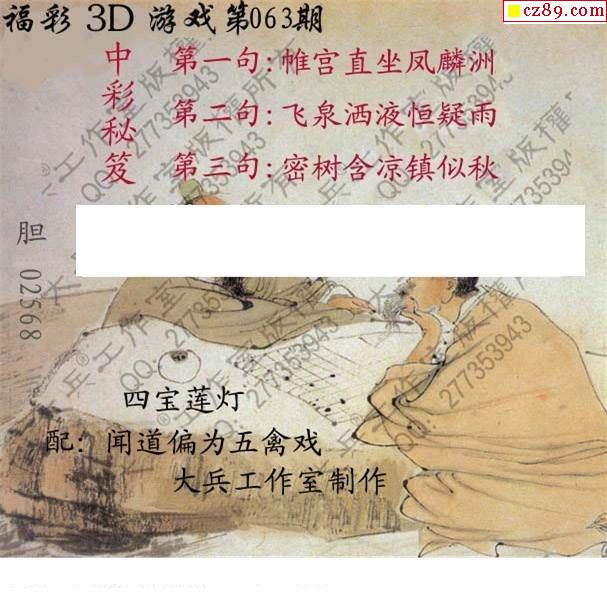 福彩 3D 游戏第063期
cz89.com
中彩秘笈
第一句:帷宫直坐凤麟洲
第二句:飞泉洒液恒疑雨
第三句:密树含凉镇似秋
胆 02568
四宝莲灯
配:闻道偏为五禽戏
大兵工作室制作
大兵®工作室版权所有
QQ:277353943